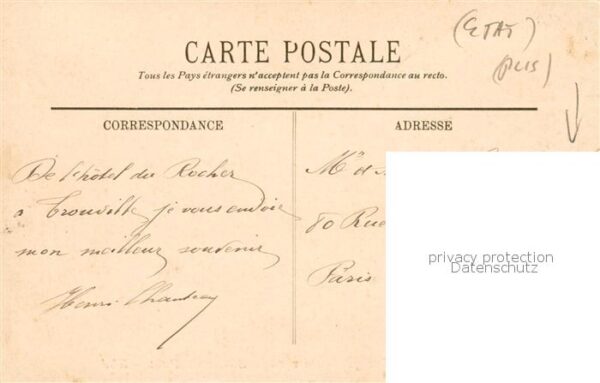 (ETAT)
(PLIS)
CARTE POSTALE
Tous les Pays étrangers n'acceptent pas la Correspondance au recto.
(Se renseigner à la Poste).
CORRESPONDANCE
De l'hôtel du Rocher
a Trouville je vous envoie
mon meilleur souvenir
Henri
ADRESSE
Mr et
80 Rue
Paris
privacy protection
Datenschutz